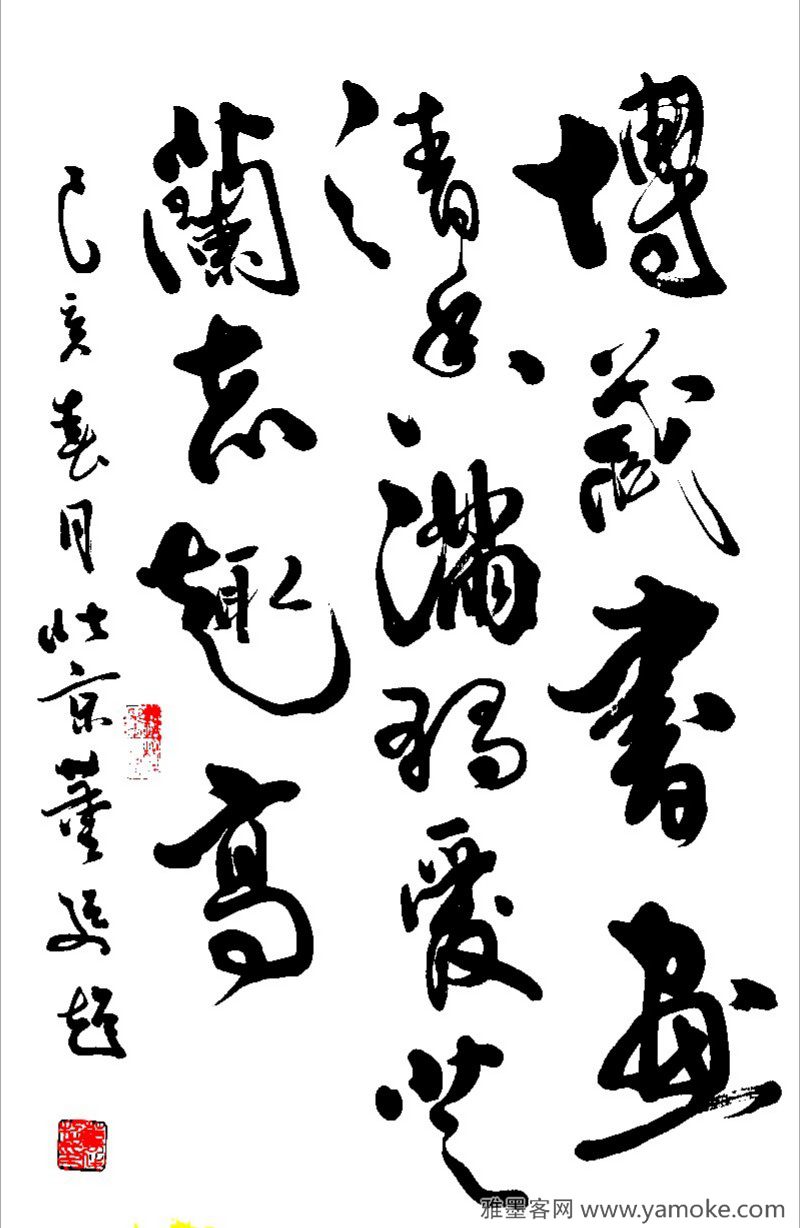 博藏書畫
清香滿獨愛芝
蘭志趣高
己亥春月北京董 題
雅墨客网 www.yamoke.com